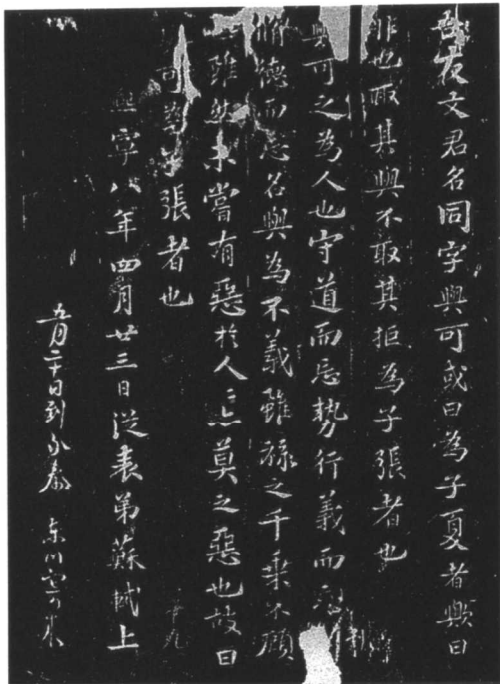 友文君名同字與可或曰為子夏者歟曰
非也取其與不取其拒為子張者也
與可之為人也守道而忘勢行義而忘
脩德而忘名與為不義雖祿之千乘不顧
雖然未嘗有惡於人人亦莫之惡也故曰
可為子張者也
熙寧八年四月廿三日從表弟蘇軾上